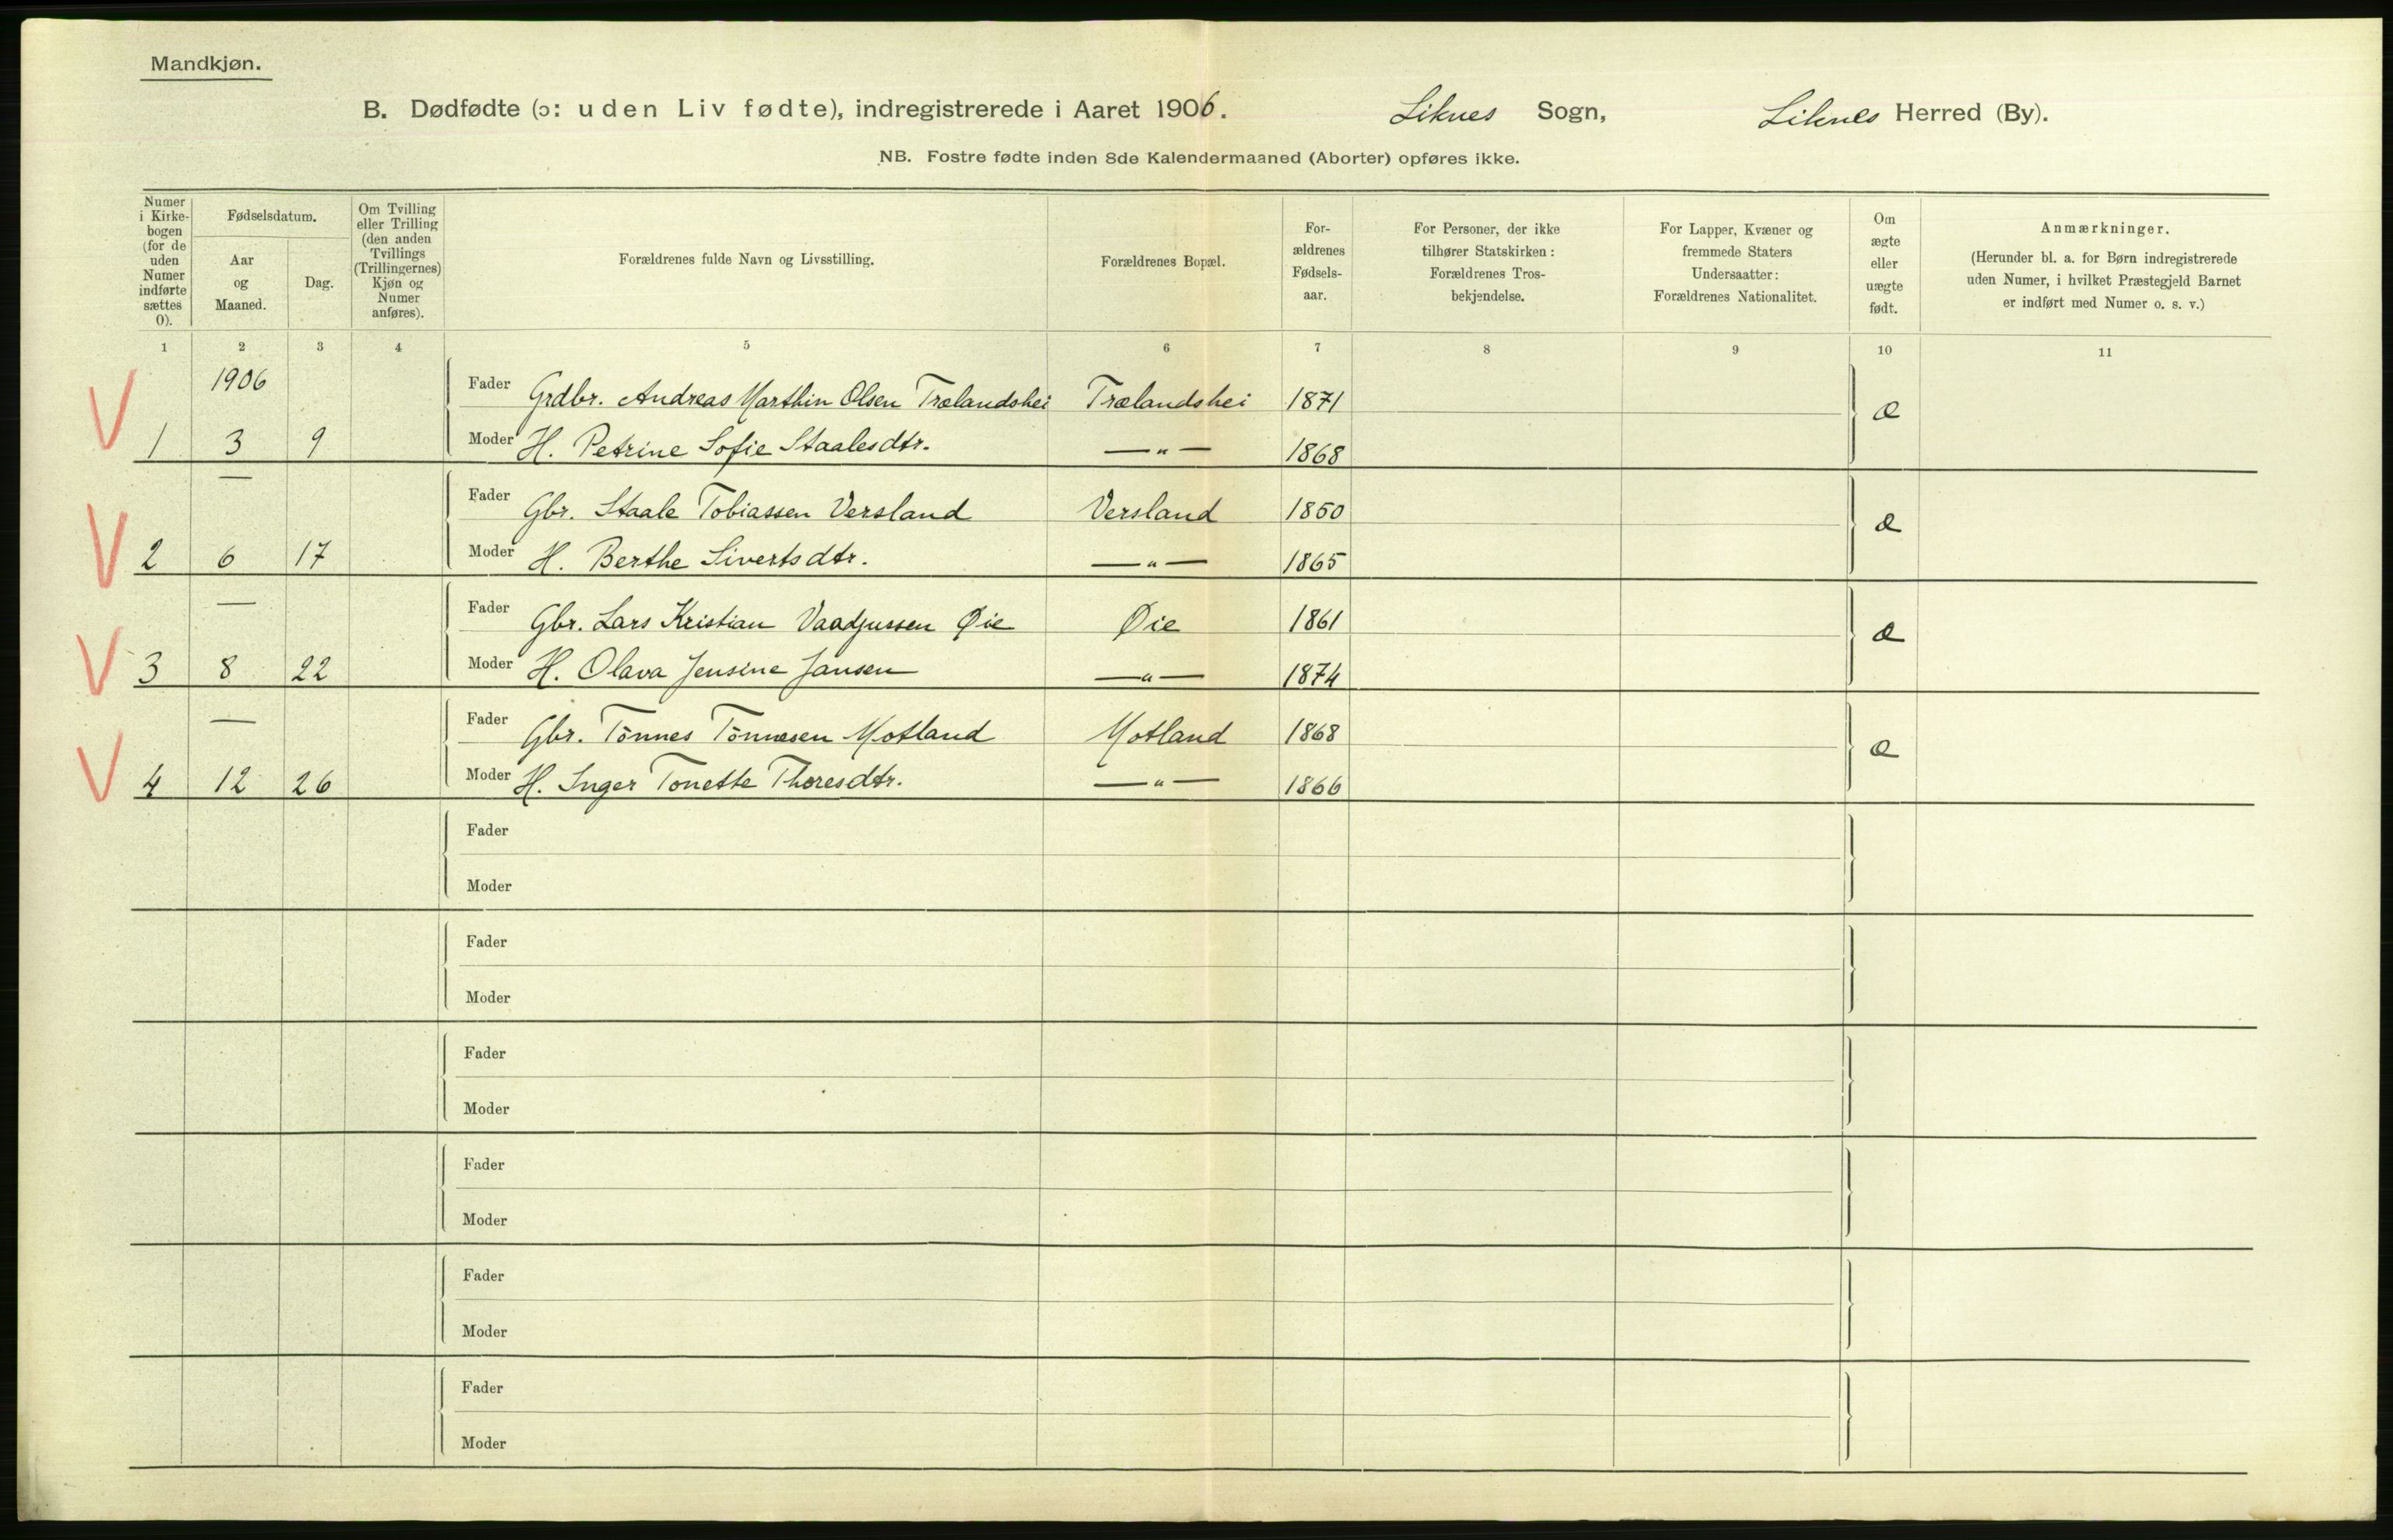 Mandkjøn.
B. Dødfødte (ɔ: uden Liv fødte), indregistrerede i Aaret 1906. Liknes Sogn, Liknes Herred (By).
NB. Fostre fødte inden 8de Kalendermaaned (Aborter) opføres ikke.
Numer i Kirkebogen (for de uden Numer indførte sættes 0).
Fødselsdatum.
Aar og Maaned.
Dag.
Om Tvilling eller Trilling (den anden Tvillings (Trillingernes) Kjøn og Numer anføres).
Forældrenes fulde Navn og Livsstilling.
Forældrenes Bopæl.
Forældrenes Fødselsaar.
For Personer, der ikke tilhører Statskirken: Forældrenes Trosbekjendelse.
For Lapper, Kvæner og fremmede Staters Undersaatter: Forældrenes Nationalitet.
Om ægte eller uægte født.
Anmærkninger.
(Herunder bl. a. for Børn indregistrerede uden Numer, i hvilket Præstegjeld Barnet er indført med Numer o. s. v.)
1 2 3 4 5 6 7 8 9 10 11
1906 Fader Grdbr. Andreas Marthin Olsen Trælandshei Trælandshei 1871 æ
V 1 3 9 Moder H. Petrine Sofie Staalesdtr. —"— 1868
— Fader Gbr. Staale Tobiassen Versland Versland 1850 æ
V 2 6 17 Moder H. Berthe Sivertsdtr. —"— 1865
— Fader Gbr. Lars Kristian Vaadjussen Øie Øie 1861 æ
V 3 8 22 Moder H. Olava Jensine Jansen —"— 1874
— Fader Gbr. Tönnes Tönnesen Motland Motland 1868 æ
V 4 12 26 Moder H. Inger Tonette Thoresdtr. —"— 1866
Fader
Moder
Fader
Moder
Fader
Moder
Fader
Moder
Fader
Moder
Fader
Moder